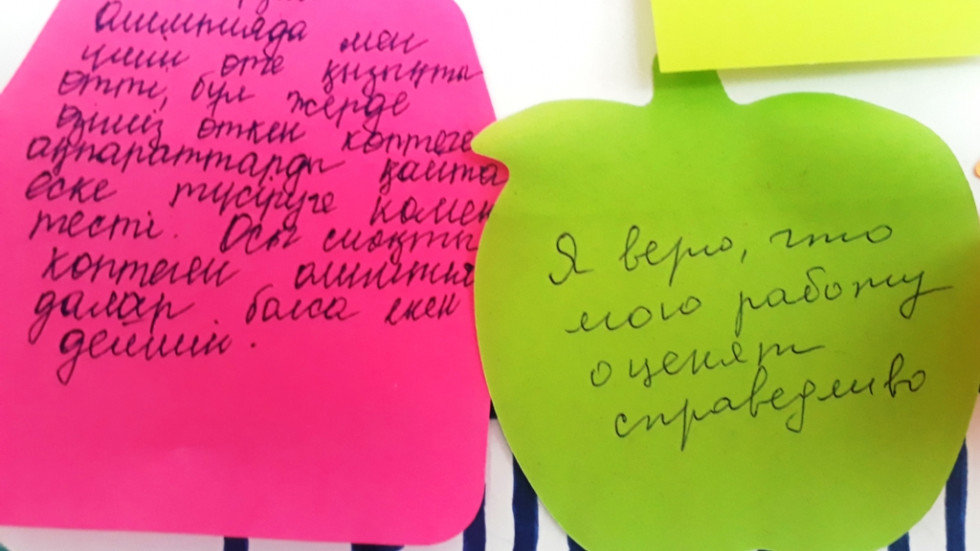 олимпиада мен
үшін өте қызықты
өтті, бұл жерде
біз өткен көптеге
ақпараттарды қайта
еске түсіруге көмек
тесті. Осы сияқты
көптеген олимпиа
далар болса екен
деймін.
Я верю, что
мою работу
оценят
справедливо